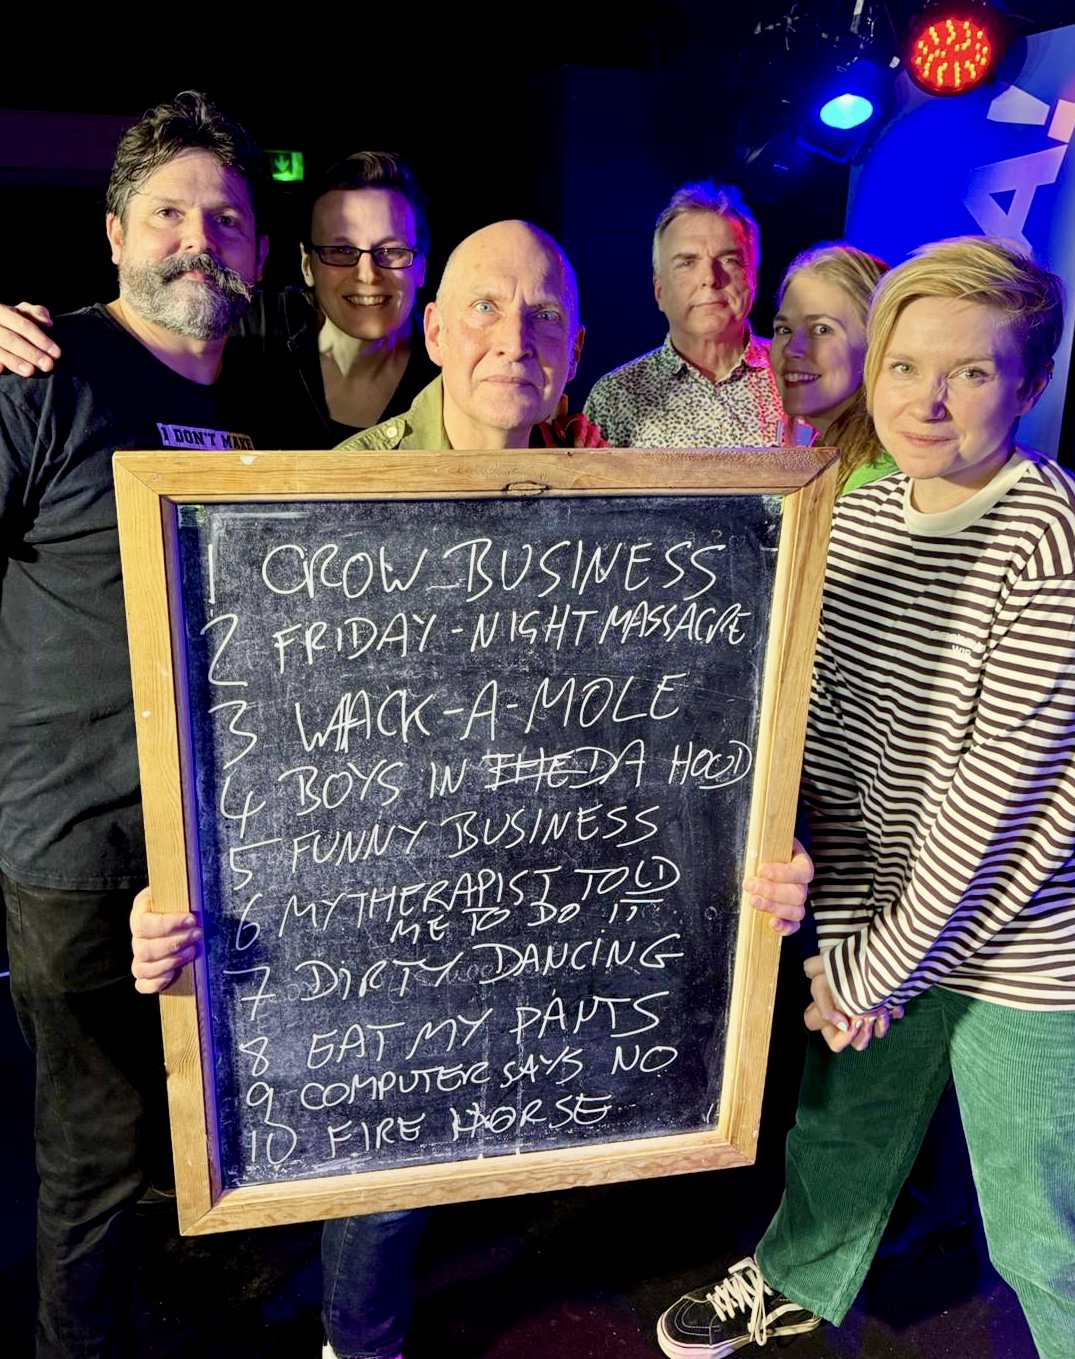 A!
I DON'T MAKE
1 CROW BUSINESS
2 FRIDAY-NIGHT MASSACRE
3 WHACK-A-MOLE
4 BOYS IN THE DA HOOD
5 FUNNY BUSINESS
6 MY THERAPIST TOLD
ME TO DO IT
7 DIRTY DANCING
8 EAT MY PANTS
9 COMPUTER SAYS NO
10 FIRE HORSE